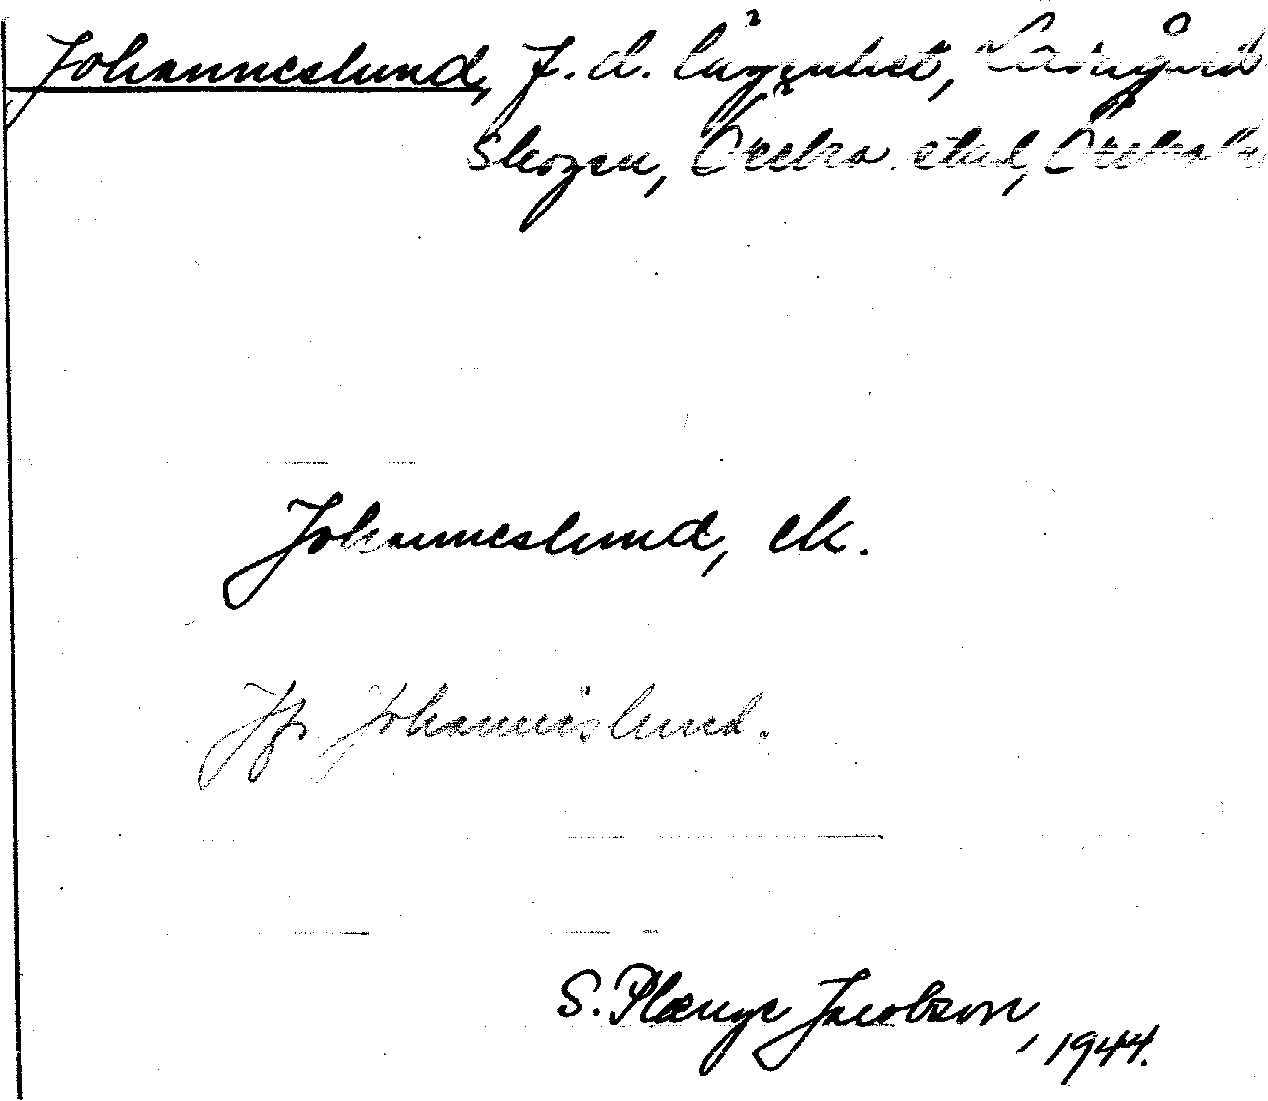 Johanneslund, f.d. lägenhet,
Skogen, Örebro stad, Örebro l
Johanneslund, ek.
Jfr Johannislund.
S. Plænge Jacobson, 1944.